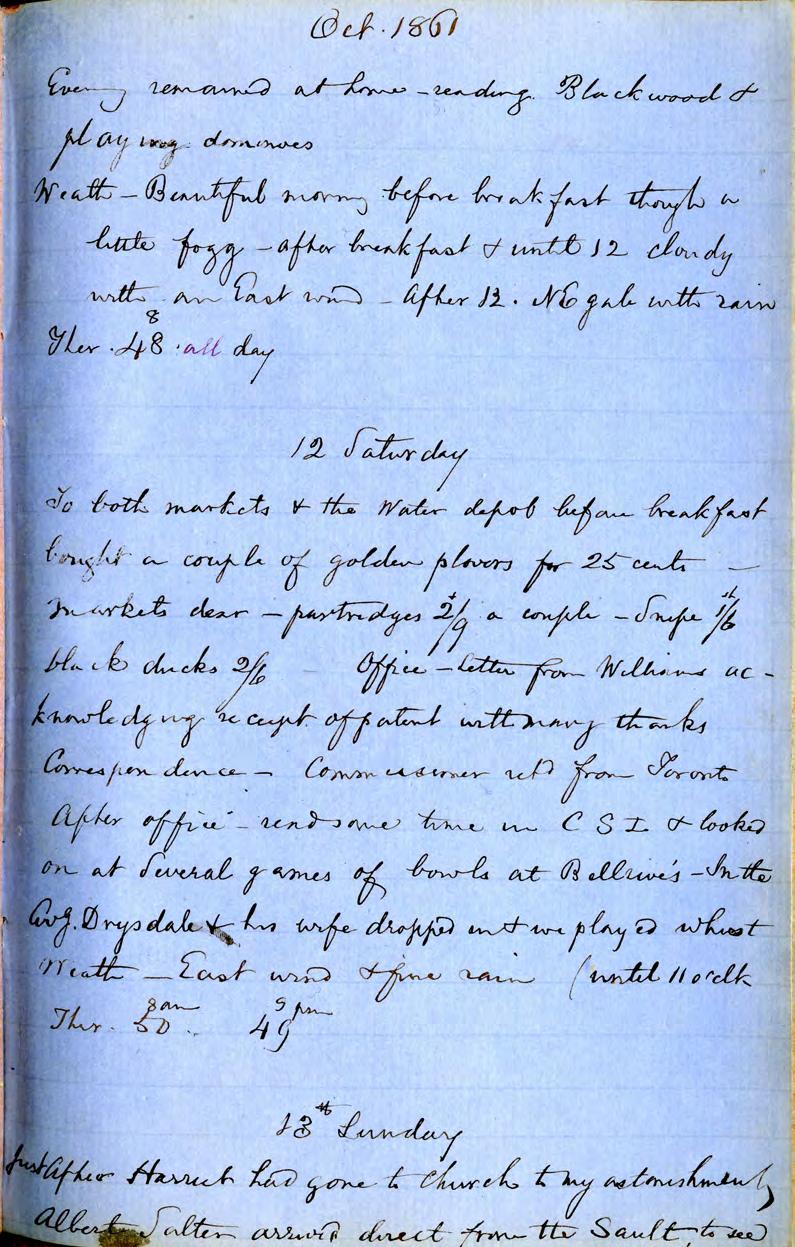 Oct. 1861
Evening remained at home - reading Blackwood &
playing dominoes
Weath - Beautiful morng before breakfast though a
little fogg - after breakfast & until 12 cloudy
with an East wind - After 12. NE gale with rain
8
Ther. 48 all day
12 Saturday
To both markets & the Water depot before breakfast
bought a couple of golden plovers for 25 cents -
markets dear - partridges 2/9 a couple - Snipe 1/6
black ducks 2/6 Office - Letter from Williams ac-
knowledging receipt of patent with many thanks
Correspondence - Commissioner retd from Toronto
After office - read some time in C S I & looked
on at several games of bowls at Bellrive's - In the
Evg. Drysdale & his wife dropped in & we played whist
Weath - East wind & fine rain (until 11 o'clk
8am 9 pm
Ther. 50. 49
13th Sunday
Just After Harriet had gone to Church to my astonishment,
Albert Salter arrived direct from the Sault, to see